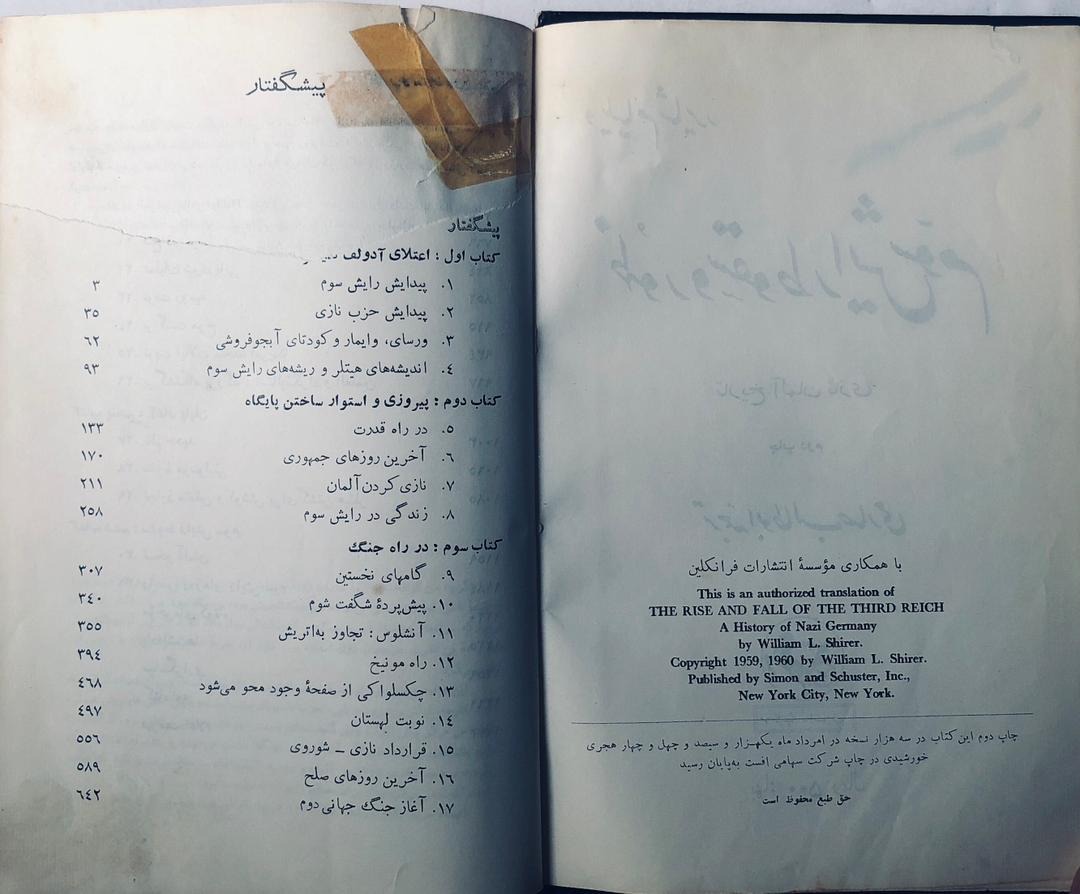 با همکاری مؤسسهٔ انتشارات فرانکلین
This is an authorized translation of
THE RISE AND FALL OF THE THIRD REICH
A History of Nazi Germany
by William L. Shirer.
Copyright 1959, 1960 by William L. Shirer.
Published by Simon and Schuster, Inc.,
New York City, New York.
چاپ دوم این کتاب در سه هزار نسخه در امرداد ماه یکهزار و سیصد و چهل و چهار هجری
خورشیدی در چاپ شرکت سهامی افست به‌پایان رسید
حق طبع محفوظ است
پیشگفتار
پیشگفتار
کتاب اول : اعتلای آدولف
۱. پیدایش رایش سوم ۳
۲. پیدایش حزب نازی ۳۵
۳. ورسای، وایمار و کودتای آبجوفروشی ۶۲
۴. اندیشه‌های هیتلر و ریشه‌های رایش سوم ۹۳
کتاب دوم : پیروزی و استوار ساختن پایگاه
۵. در راه قدرت ۱۳۳
۶. آخرین روزهای جمهوری ۱۷۰
۷. نازی کردن آلمان ۲۱۱
۸. زندگی در رایش سوم ۲۵۸
کتاب سوم : در راه جنگ
۹. گامهای نخستین ۳۰۷
۱۰. پیش‌پردهٔ شگفت شوم ۳۴۰
۱۱. آنشلوس: تجاوز به‌اتریش ۳۵۵
۱۲. راه مونیخ ۳۹۴
۱۳. چکسلواکی از صفحهٔ وجود محو می‌شود ۴۶۸
۱۴. نوبت لهستان ۴۹۷
۱۵. قرارداد نازی ـ شوروی ۵۵۶
۱۶. آخرین روزهای صلح ۵۸۹
۱۷. آغاز جنگ جهانی دوم ۶۴۲